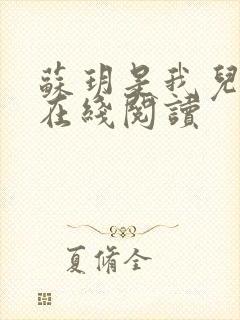 蘇玥是我兒
在綫閱讀
夏脩全